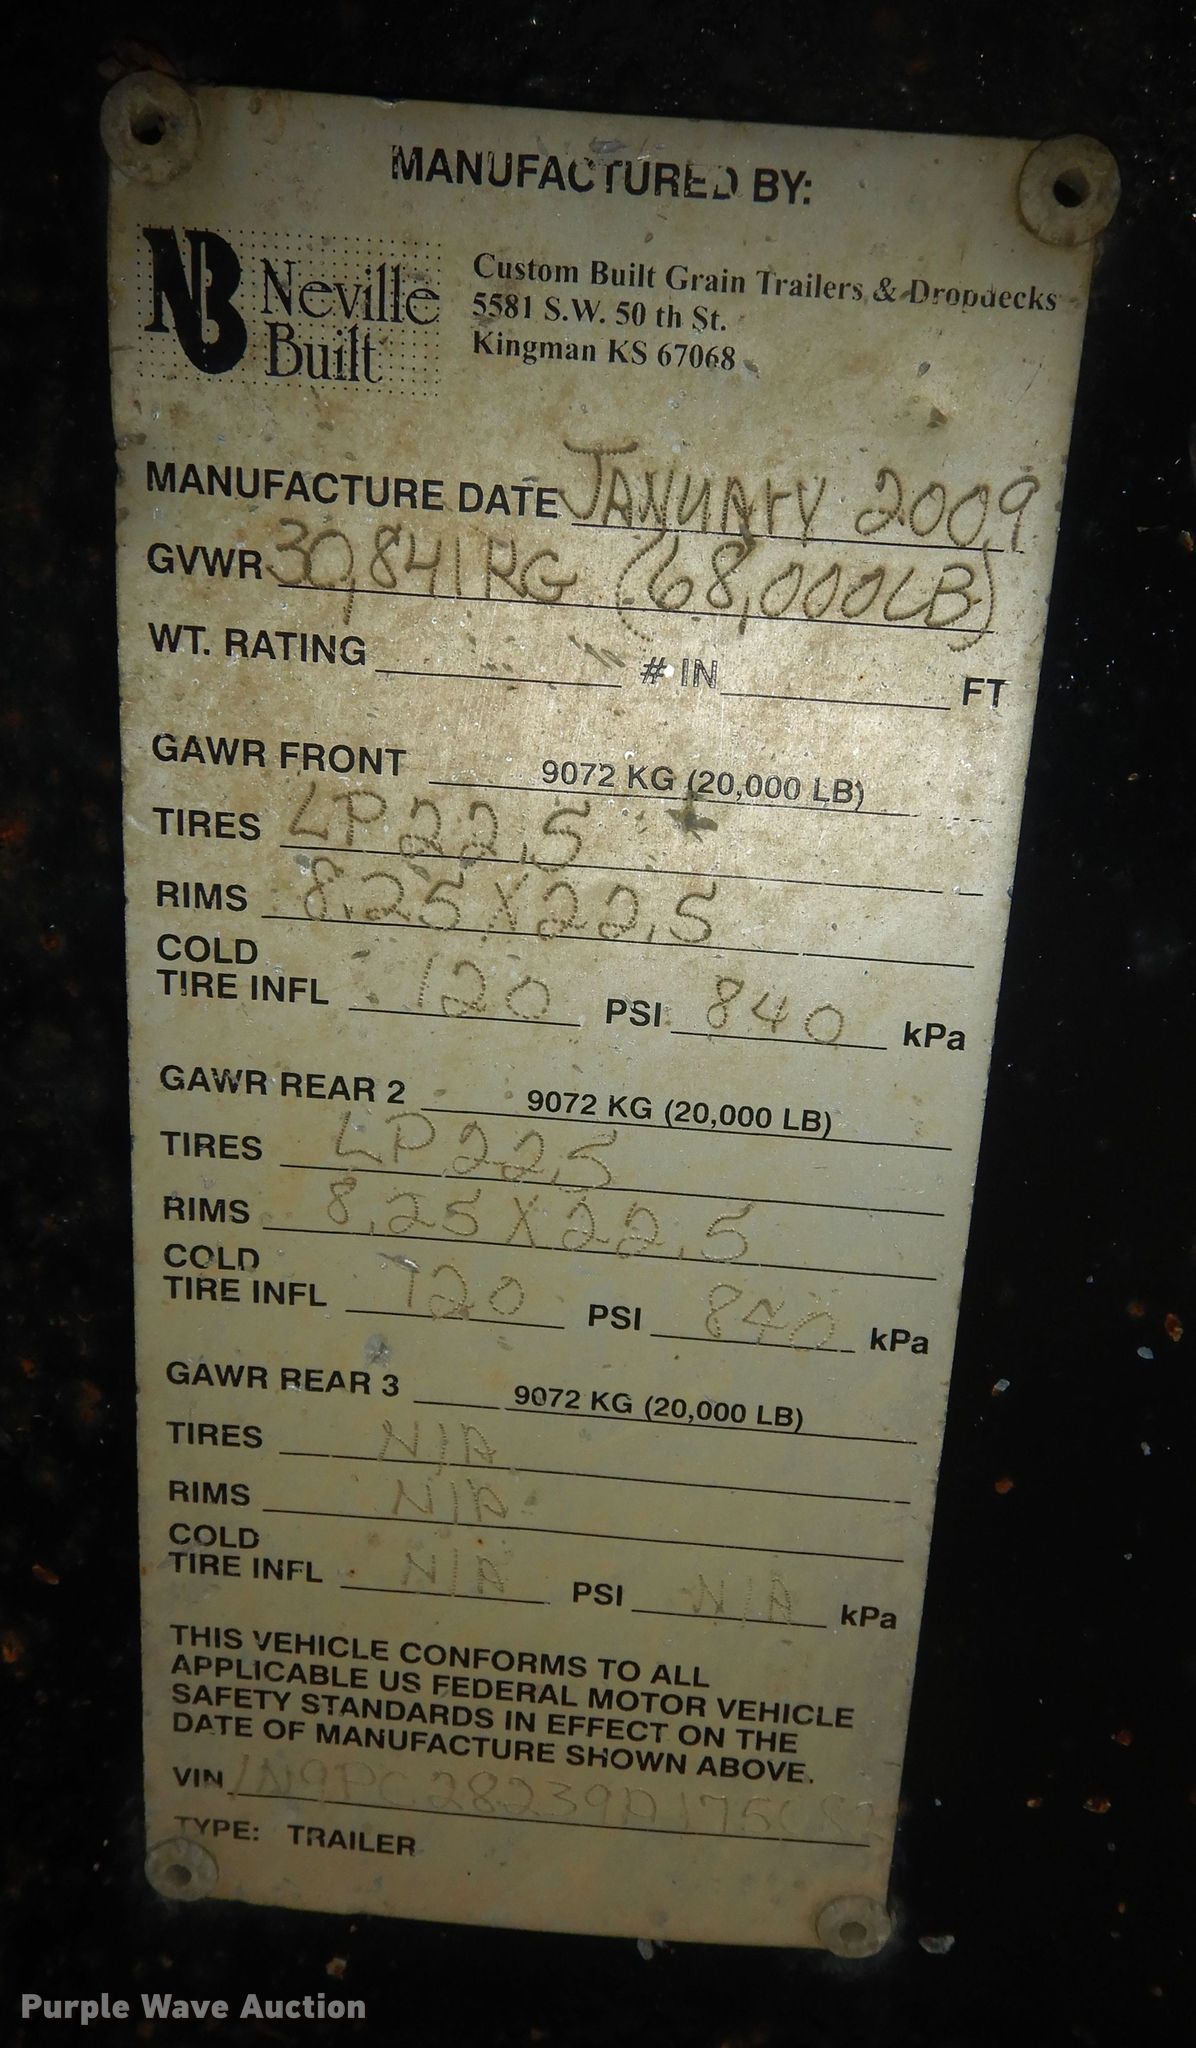 MANUFACTURED BY:
NB Neville Built
Custom Built Grain Trailers & Dropdecks
5581 S.W. 50 th St.
Kingman KS 67068
MANUFACTURE DATE JANUARY 2009
GVWR 30,841KG (68,000LB)
WT. RATING # IN FT
GAWR FRONT 9072 KG (20,000 LB)
TIRES LP22.5
RIMS 8.25X22.5
COLD
TIRE INFL 120 PSI 840 kPa
GAWR REAR 2 9072 KG (20,000 LB)
TIRES LP22.5
RIMS 8.25X22.5
COLD
TIRE INFL 120 PSI 840 kPa
GAWR REAR 3 9072 KG (20,000 LB)
TIRES N/A
RIMS N/A
COLD
TIRE INFL N/A PSI N/A kPa
THIS VEHICLE CONFORMS TO ALL
APPLICABLE US FEDERAL MOTOR VEHICLE
SAFETY STANDARDS IN EFFECT ON THE
DATE OF MANUFACTURE SHOWN ABOVE.
VIN
TYPE: TRAILER
Purple Wave Auction